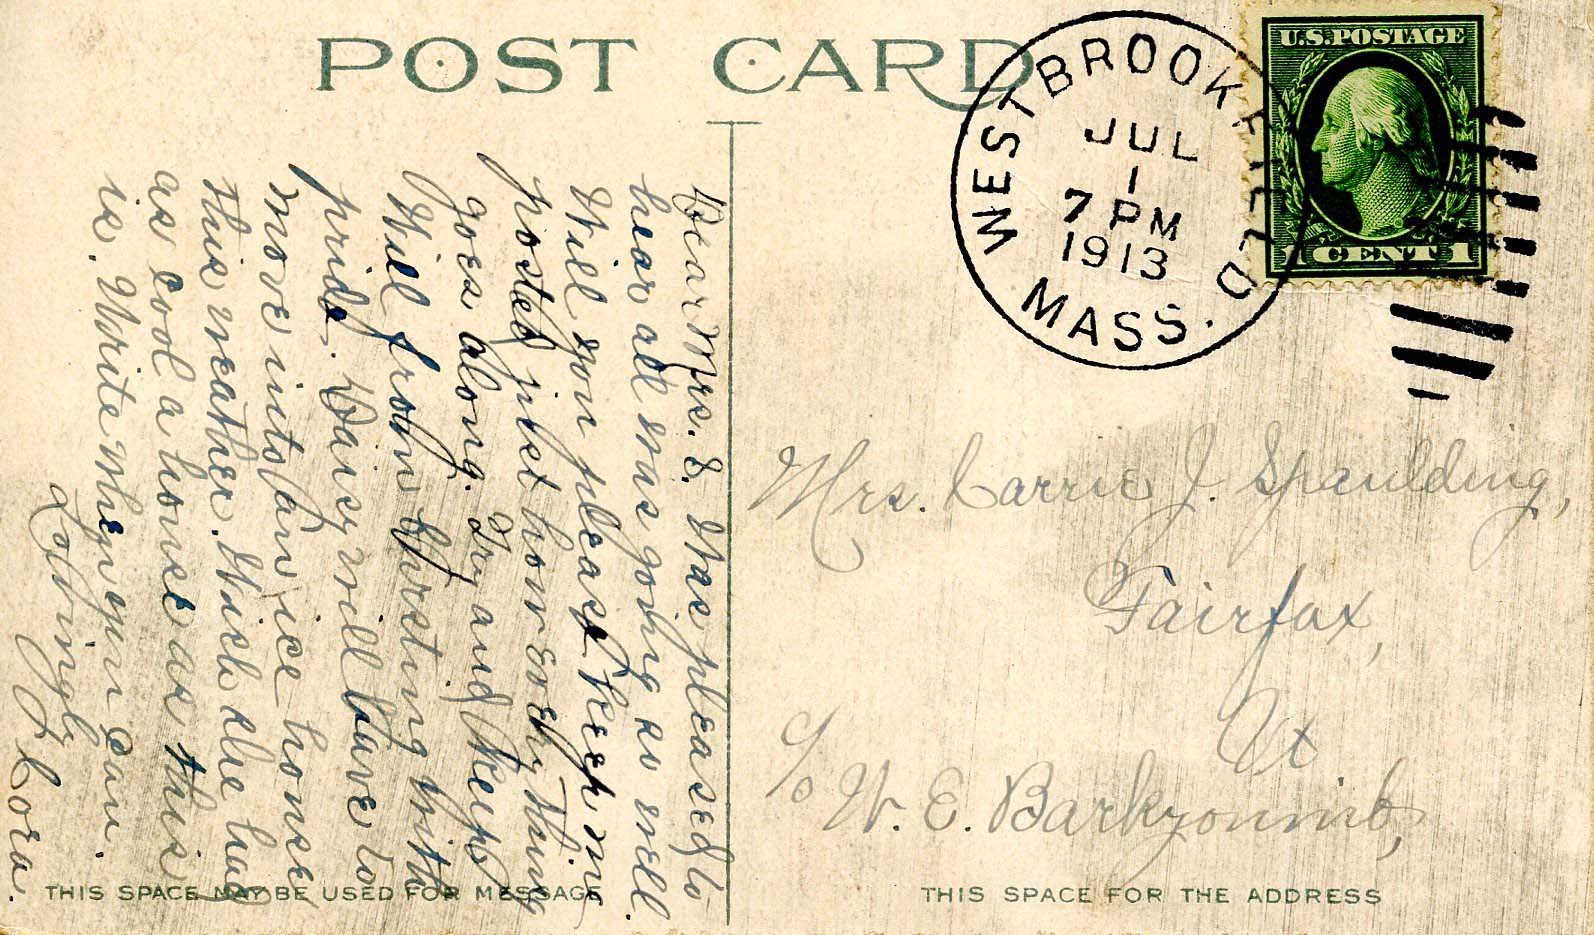 POST CARD
WESTBROOKFIELD
MASS.
JUL
1
7 PM
1913
U.S.POSTAGE
1 CENT 1
Dear Mrs. S. Was pleased to
hear all was going so well.
Will you please keep me
posted just how everything
goes along. Try and keep
Will from bursting with
pride. Daisy will have to
move into an ice house
this weather. Wish she had
as cool a house as this
is. Write when you can.
Lovingly
Cora.
Mrs. Carrie J. Spaulding,
Fairfax,
Vt
c/o W. E.
THIS SPACE MAY BE USED FOR MESSAGE
THIS SPACE FOR THE ADDRESS